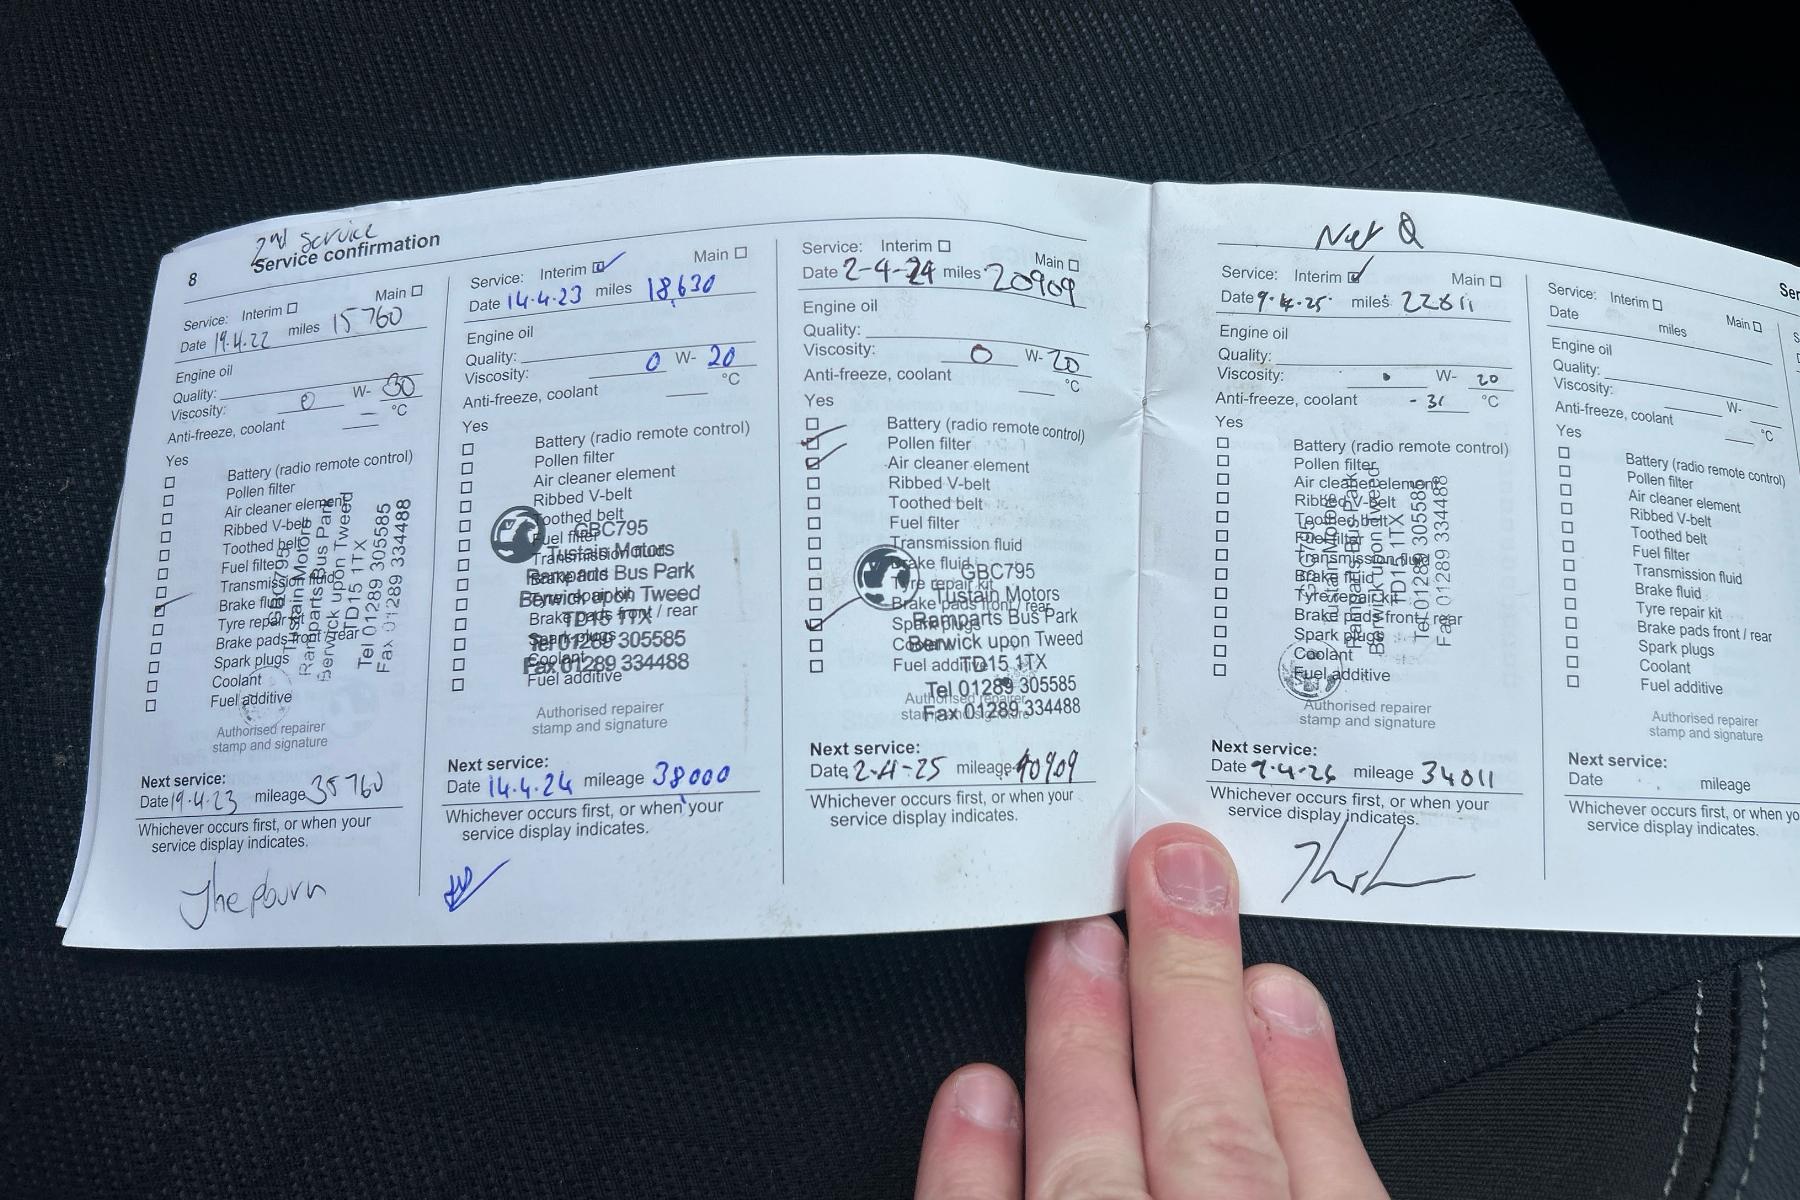 2nd Service
8 Service confirmation
Service: Interim Main
Date 19.4.22 miles 15760
Engine oil
Quality:
Viscosity: 0 W- 30
Anti-freeze, coolant °C
Yes
Battery (radio remote control)
Pollen filter
Air cleaner element
Ribbed V-belt
Toothed belt
Fuel filter
Transmission fluid
Brake fluid
Tyre repair kit
Brake pads front / rear
Spark plugs
Coolant
Fuel additive
GBC795
Tustain Motors
Ramparts Bus Park
Berwick upon Tweed
TD15 1TX
Tel 01289 305585
Fax 01289 334488
Authorised repairer
stamp and signature
Next service:
Date 19.4.23 mileage 35760
Whichever occurs first, or when your
service display indicates.
Jhepburn
Service: Interim Main
Date 14.4.23 miles 18,630
Engine oil
Quality:
Viscosity: 0 W- 20
Anti-freeze, coolant °C
Yes
Battery (radio remote control)
Pollen filter
Air cleaner element
Ribbed V-belt
Toothed belt
Fuel filter
Transmission fluid
Brake fluid
Tyre repair kit
Brake pads front / rear
Spark plugs
Coolant
Fuel additive
GBC795
Tustain Motors
Ramparts Bus Park
Berwick upon Tweed
TD15 1TX
Tel 01289 305585
Fax 01289 334488
Authorised repairer
stamp and signature
Next service:
Date 14.4.24 mileage 38000
Whichever occurs first, or when your
service display indicates.
Service: Interim Main
Date 2-4-24 miles 20909
Engine oil
Quality:
Viscosity: 0 W- 20
Anti-freeze, coolant °C
Yes
Battery (radio remote control)
Pollen filter
Air cleaner element
Ribbed V-belt
Toothed belt
Fuel filter
Transmission fluid
Brake fluid
Tyre repair kit
Brake pads front / rear
Spark plugs
Coolant
Fuel additive
GBC795
Tustain Motors
Ramparts Bus Park
Berwick upon Tweed
TD15 1TX
Tel 01289 305585
Fax 01289 334488
Authorised repairer
stamp and signature
Next service:
Date 2-4-25 mileage 40909
Whichever occurs first, or when your
service display indicates.
Service: Interim Main
Date 9.4.25 miles
Engine oil
Quality:
Viscosity: W- 20
Anti-freeze, coolant - 31 °C
Yes
Battery (radio remote control)
Pollen filter
Air cleaner element
Ribbed V-belt
Toothed belt
Fuel filter
Transmission fluid
Brake fluid
Tyre repair kit
Brake pads front / rear
Spark plugs
Coolant
Fuel additive
GBC795
Tustain Motors
Ramparts Bus Park
Berwick upon Tweed
TD15 1TX
Tel 01289 305585
Fax 01289 334488
Authorised repairer
stamp and signature
Next service:
Date 9.4.26 mileage 34011
Whichever occurs first, or when your
service display indicates.
Ser
Service: Interim Main
Date miles
Engine oil
Quality:
Viscosity: W-
Anti-freeze, coolant °C
Yes
Battery (radio remote control)
Pollen filter
Air cleaner element
Ribbed V-belt
Toothed belt
Fuel filter
Transmission fluid
Brake fluid
Tyre repair kit
Brake pads front / rear
Spark plugs
Coolant
Fuel additive
Authorised repairer
stamp and signature
Next service:
Date mileage
Whichever occurs first, or when yo
service display indicates.